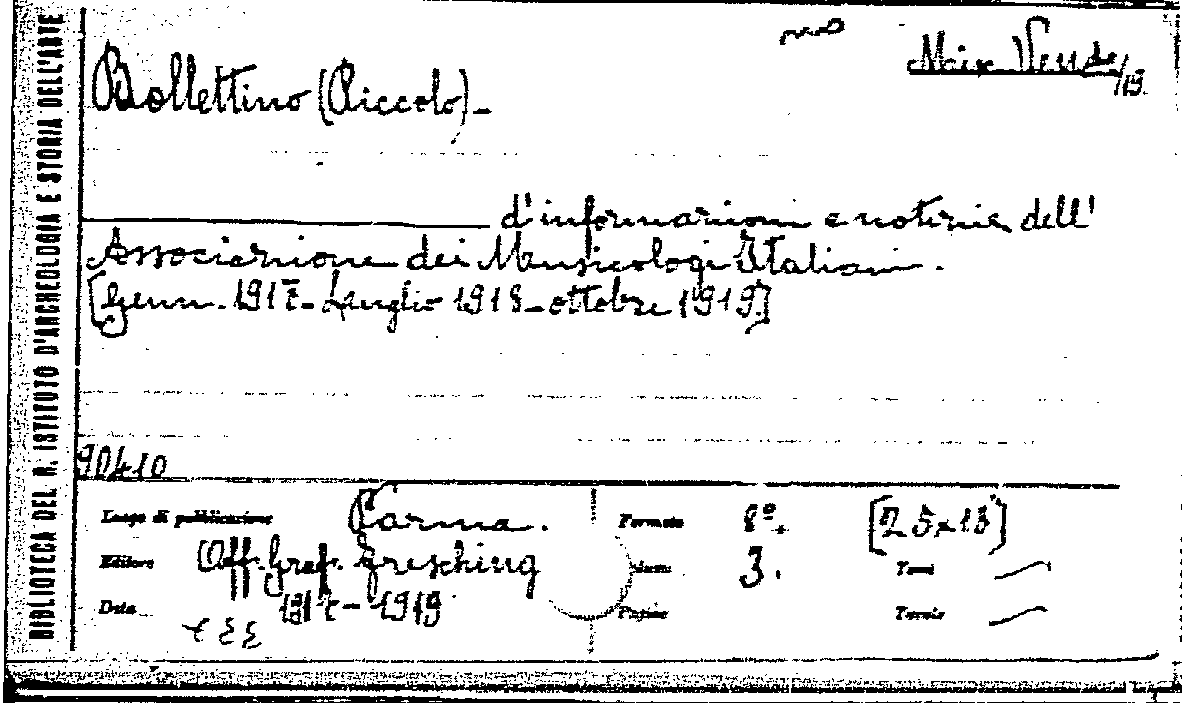 BIBLIOTECA DEL R. ISTITUTO D'ARCHEOLOGIA E STORIA DELL'ARTE
Bollettino (Piccolo) -
d'informazioni e notizie dell'
Associazione dei Musicologi Italiani.
[Genn. 1917 - Luglio 1918 - ottobre 1919]
90410
Luogo di pubblicazione Parma.
Editore Off. Graf. Fresching
Data 1917 - 1919
Formato 8º. [25x18]
3. Tomi
Pagine Tavole